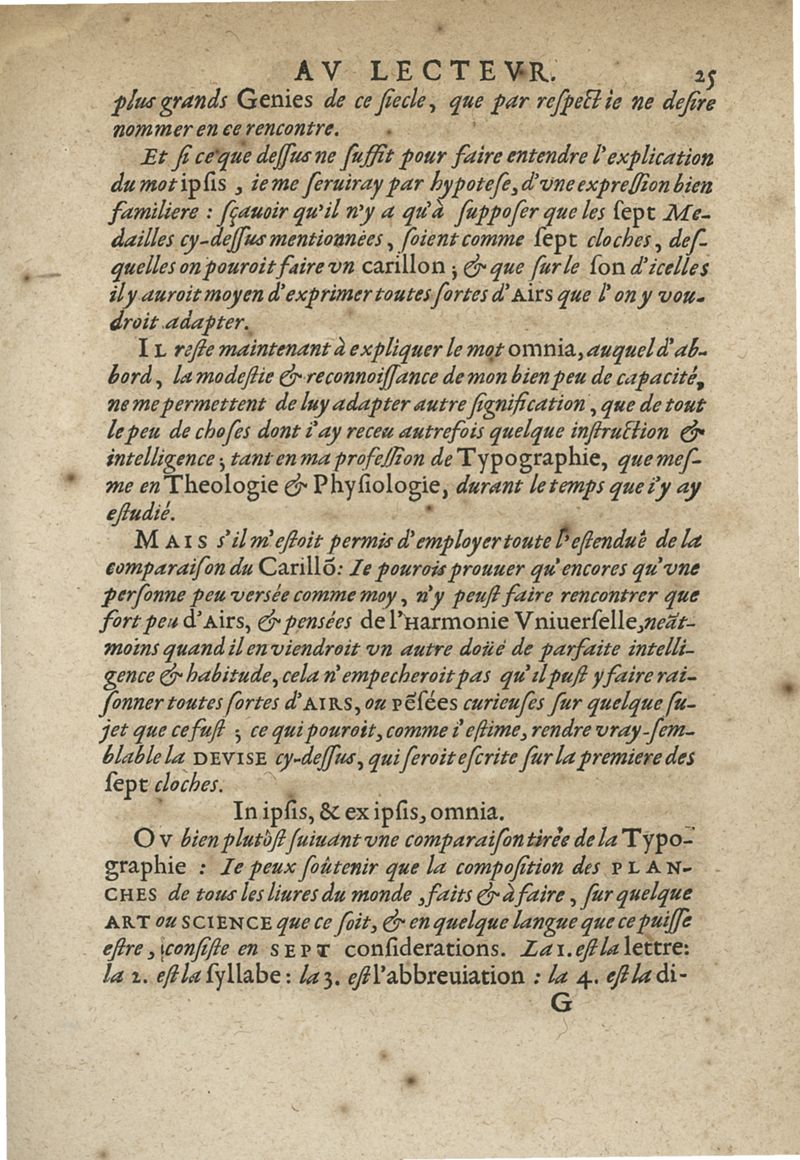 AV LECTEVR. 25
plus grands Genies de ce ſiecle, que par reſpect ie ne deſire
nommer en ce rencontre.
Et ſi ce que deſſus ne ſuffit pour faire entendre l'explication
du mot ipſis, ie me ſeruiray par hypoteſe, d'vne expreſſion bien
familiere : ſçauoir qu'il n'y a qu'à ſuppoſer que les ſept Me-
dailles cy-deſſus mentionnées, ſoient comme ſept cloches, deſ-
quelles on pouroit faire vn carillon ; & que ſur le ſon d'icelles
il y auroit moyen d'exprimer toutes ſortes d'Airs que l'on y vou-
droit adapter.
IL reſte maintenant à expliquer le mot omnia, auquel d'ab-
bord, la modeſtie & reconnoiſſance de mon bien peu de capacité,
ne me permettent de luy adapter autre ſignification, que de tout
le peu de choſes dont i'ay receu autrefois quelque inſtruction &
intelligence ; tant en ma profeſſion de Typographie, que meſ-
me en Theologie & Phyſiologie, durant le temps que i'y ay
eſtudié.
MAIS s'il m'eſtoit permis d'employer toute l'eſtenduë de la
comparaiſon du Carillõ: Ie pourois prouuer qu'encores qu'vne
perſonne peu verſée comme moy, n'y peuſt faire rencontrer que
fort peu d'Airs, & penſées de l'Harmonie Vniuerſelle, neãt-
moins quand il en viendroit vn autre doüé de parfaite intelli-
gence & habitude, cela n'empecheroit pas qu'il puſt y faire rai-
ſonner toutes ſortes d'AIRS, ou pẽſées curieuſes ſur quelque ſu-
jet que ce fuſt ; ce qui pouroit, comme i'eſtime, rendre vray-ſem-
blable la DEVISE cy-deſſus, qui ſeroit eſcrite ſur la premiere des
ſept cloches.
In ipſis, & ex ipſis, omnia.
OV bien plutòſt ſuiuant vne comparaiſon tirée de la Typo-
graphie : Ie peux ſoûtenir que la compoſition des PLAN-
CHES de tous les liures du monde, faits & à faire, ſur quelque
ART ou SCIENCE que ce ſoit, & en quelque langue que ce puiſſe
eſtre, conſiſte en SEPT conſiderations. La 1. eſt la lettre:
la 2. eſt la ſyllabe: la 3. eſt l'abbreuiation : la 4. eſt la di-
G